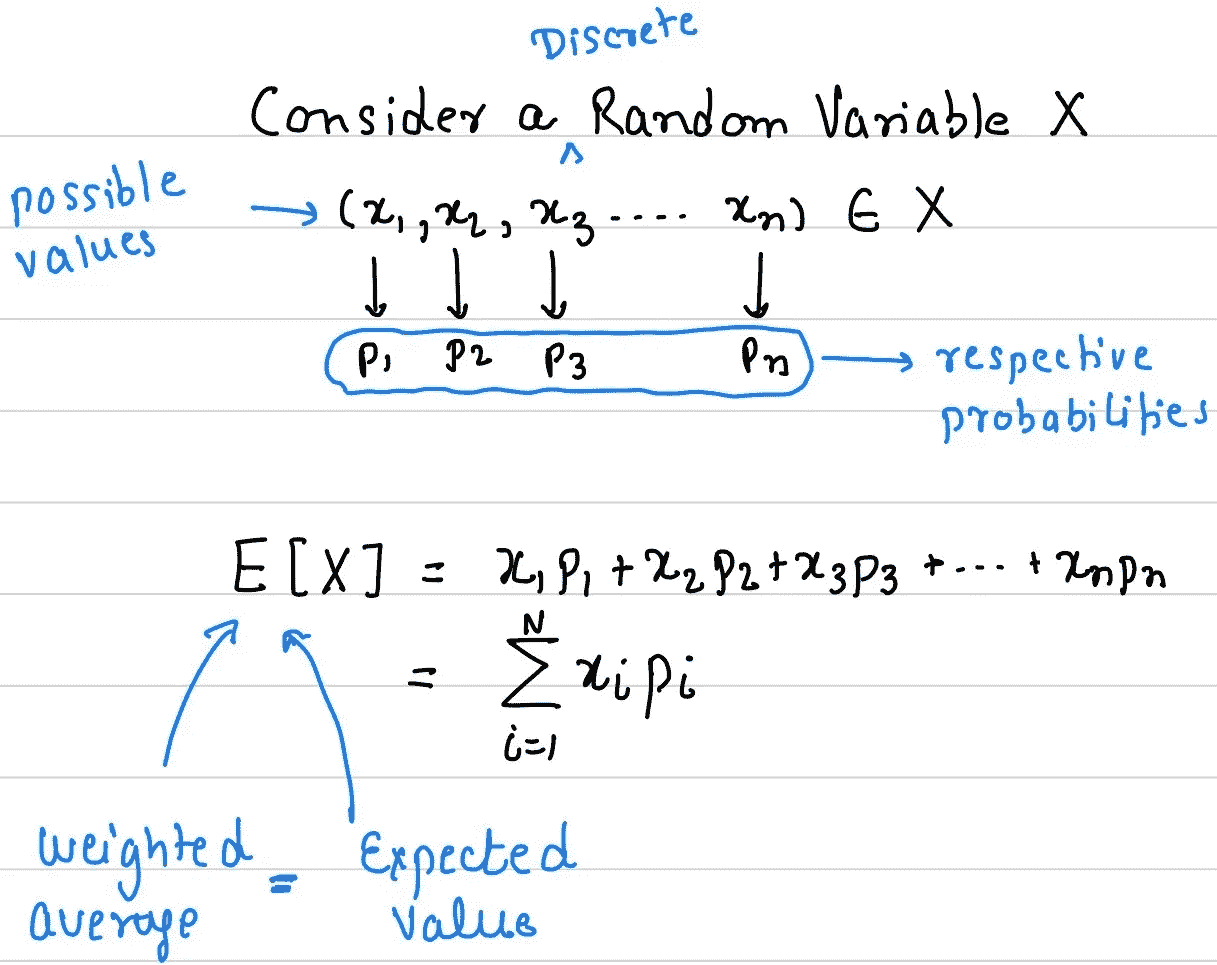 Discrete
Consider a ^ Random Variable X
possible
values
→ (x₁, x₂, x₃ .... xₙ) ∈ X
↓ ↓ ↓ ↓
p₁ p₂ p₃ pₙ → respective
probabilities
E[X] = x₁p₁ + x₂p₂ + x₃p₃ + ... + xₙpₙ
N
= ∑ xᵢpᵢ
i=1
weighted
average
=
Expected
Value